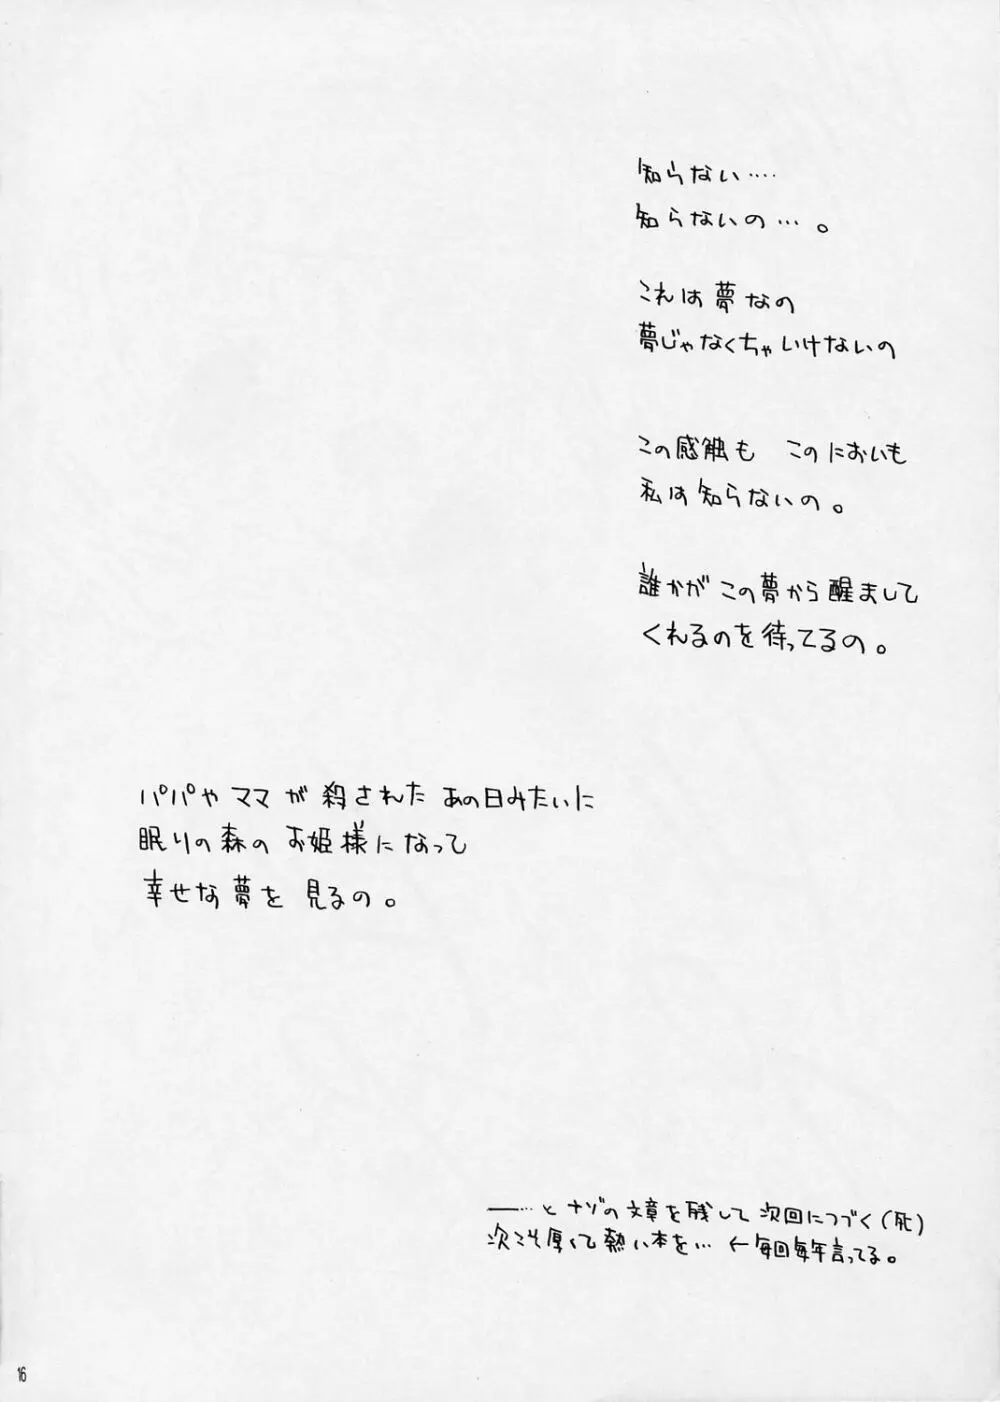 知らない‥‥
知らないの…。
これは夢なの
夢じゃなくちゃいけないの
この感触も このにおいも
私は知らないの。
誰かが この夢から醒まして
くれるのを待ってるの。
パパや ママ が 殺された あの日みたいに
眠りの森の お姫様になって
幸せな夢を 見るの。
――…とナゾの文章を残して 次回につづく(死)
次こそ厚くて熱い本を… ←毎回毎年言ってる。
16